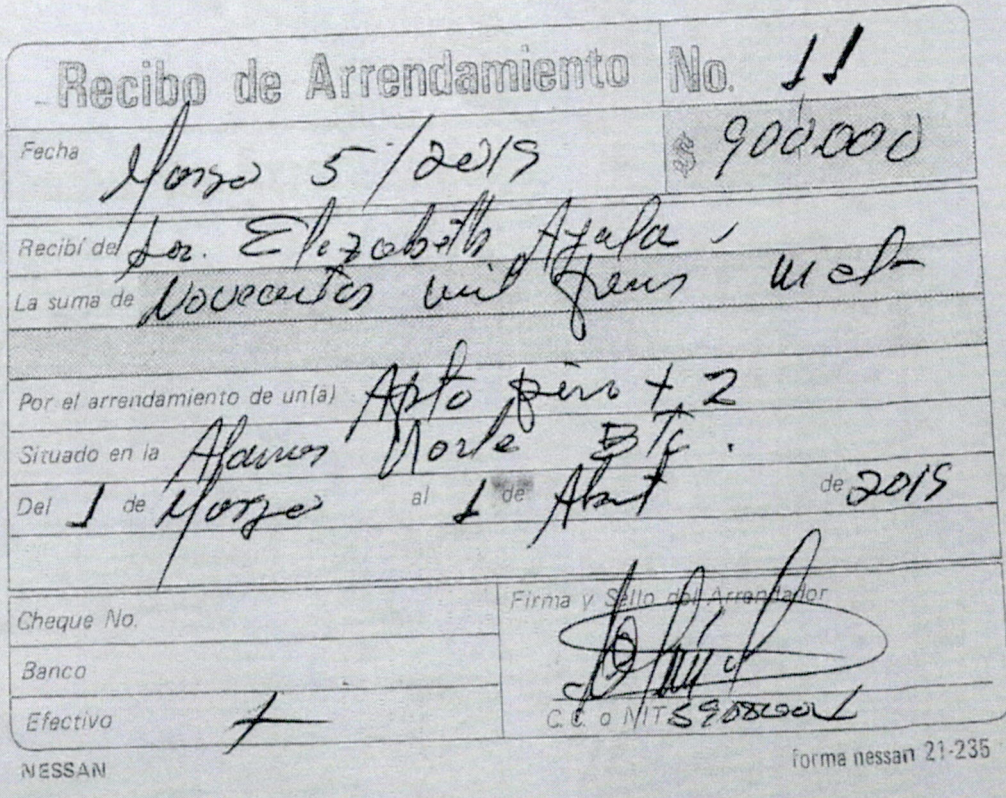 Recibo de Arrendamiento No. 11
Fecha Marzo 5/2019 $ 900.000
Recibí de Sra. Elizabeth Ayala
La suma de Novecientos mil pesos
Por el arrendamiento de un(a) Apto piso 2
Situado en la Alamos Norte BTá.
Del 1 de Marzo al 1 de Abril de 2019
Cheque No.
Firma y Sello del Arrendador
Banco
Efectivo
C.C. o NIT
NESSAN
forma nessan 21-235